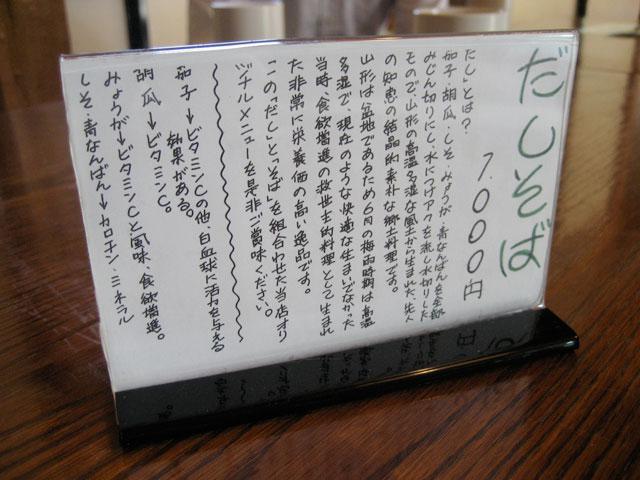 だしそば
1.000円
だし」とは?
茄子・胡瓜・しそ・みょうが・青なんばんを全部
みじん切りにし、水につけアクを流し水切りした
もので、山形の高温多湿な風土から生まれた、先人
の知恵の結晶的素朴な郷土料理です。
山形は盆地であるため6月の梅雨時期は高温
多湿で、現在のような快適な生まいでなかった
当時、食欲増進の救世主的料理として生まれ
た、非常に栄養価の高い逸品です。
この「だし」と「そば」を組合わせた当店オリ
ジナルメニューを是非ご賞味ください。
茄子→ビタミンCの他、白血球に活力を与える
効果がある。
胡瓜→ビタミンC。
みょうが→ビタミンCと風味、食欲増進。
しそ・青なんばん→カロチン・ミネラル